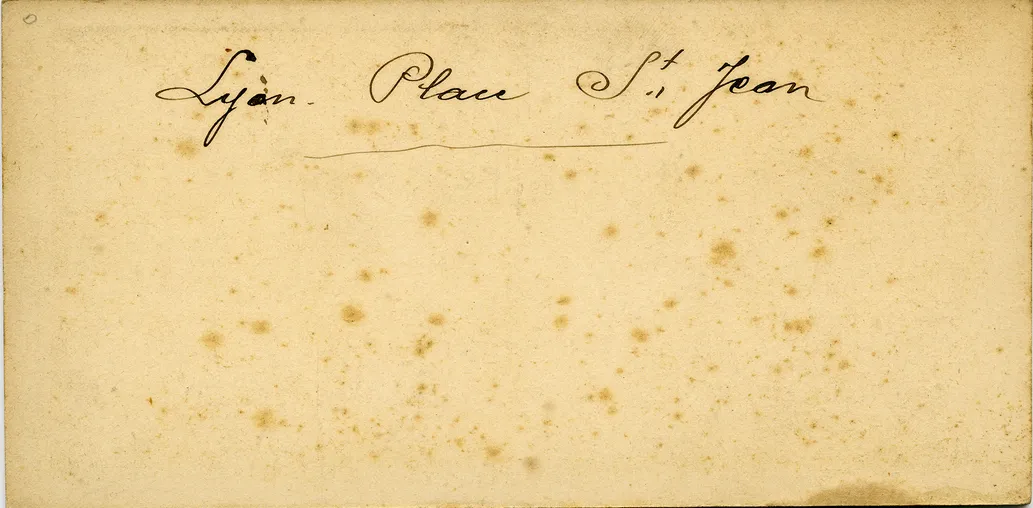 Lyon. Place St Jean